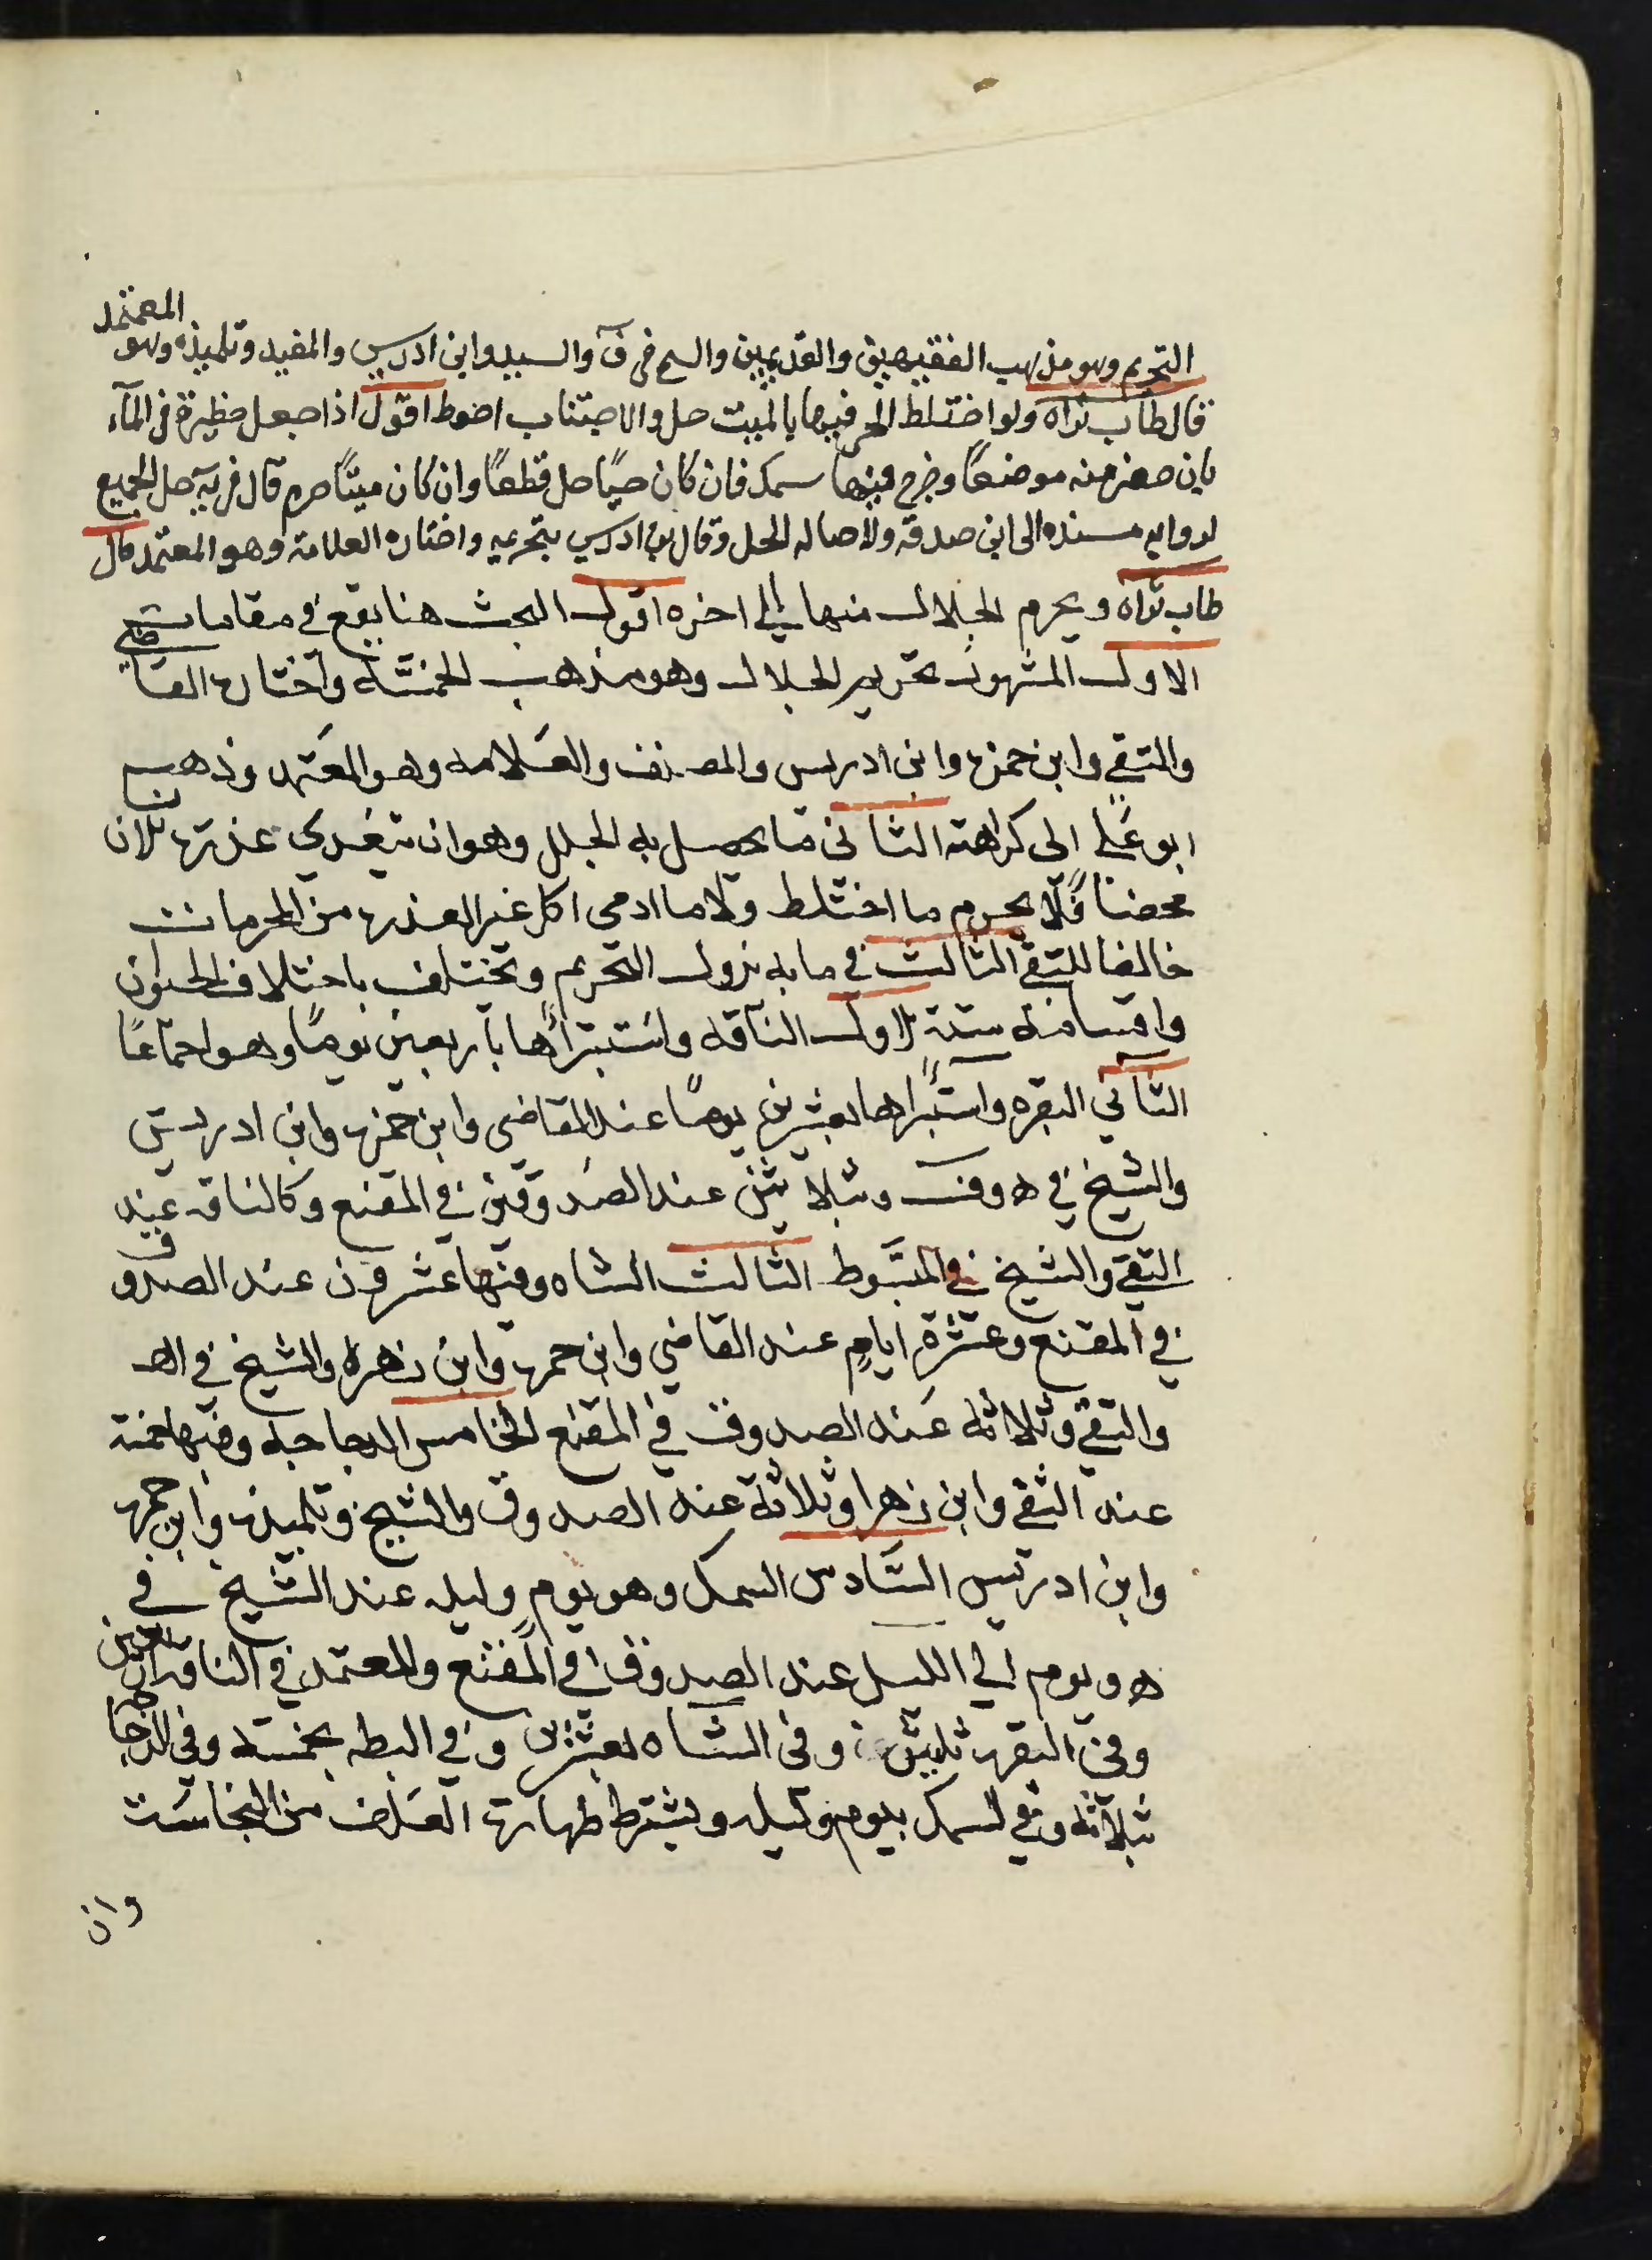 التحريم وهو مذهب الفقيهين والقديمين والشيخ في ف والسيد وابن ادريس والمفيد وتلميذه وهو المعتمد
قال طاب ثراه ولو اختلط الحي فيها بالميت حل والاجتناب احوط اقول اذا جعل حظيرة في المآء
بان حفر منه موضعًا وخرج فيها سمك فان كان حيًا حل قطعًا وان كان ميتًا حرم قال في يه حل الجميع
لروايه مسنده الى ابن صدقة ولاصاله الحل وقال بن ادريس بتحريمه واختاره العلامة وهو المعتمد قال
طاب ثراه ويحرم الجلال منها الي اخره اقول البحث هنا يقع في مقامات
الاول المشهور تحريم الجلال وهو مذهب الخمسَّه واختاره القاضي
والتقي وابن حمزه وابن ادريس والمصنف والعلامه وهو المعتمد وذهب
ابو علي الى كراهته الثاني ما يحصل به الجلل وهو ان يتغدي عذرة الانسان
محضا فلا يحرم ما اختلط ولا ما ادمى اكل غير العذره من المحرمات
خالفا للتقي الثالث في ما به يزول التحريم ويختلف باختلاف الحيوان
واقسامه ستة الاول الناقه واستبرأها باربعين يومًا وهو اجماعًا
الثاني البقره واستبراها بعشرين يومًا عند القاضي وابن حمزه وابن ادريس
والشيخ في ه وف وبثلاثين عند الصدوقين في المقنع وكالناقه عند
التقي والشيخ في المبسوط الثالث الشاه وفيها عشرون عند الصدوق
في المقنع وعشرة ايام عند القاضي وابن حمزه وابن زهره والشيخ في
والتقي وثلاثه عند الصدوق في المقنع الخامس الدجاجه وفيها خمسة
عند التقي وابن زهرا وثلاثة عند الصدوق والشيخ وتلميذه وابن حمزه
وابن ادريس السَّادس السمك وهو يوم وليله عند الشيخ في
ه ويوم الي الليل عند الصدوق في المقنع والمعتمد في الناقه اربعين
وفي البقره ثلثين وفي الشاه بعشرين وفي البطه بخمسه وفي الدجاجه
بثلاثه وفي السمك بيوم وليله ويشترط طهارة العلف من النجاسَت
وان